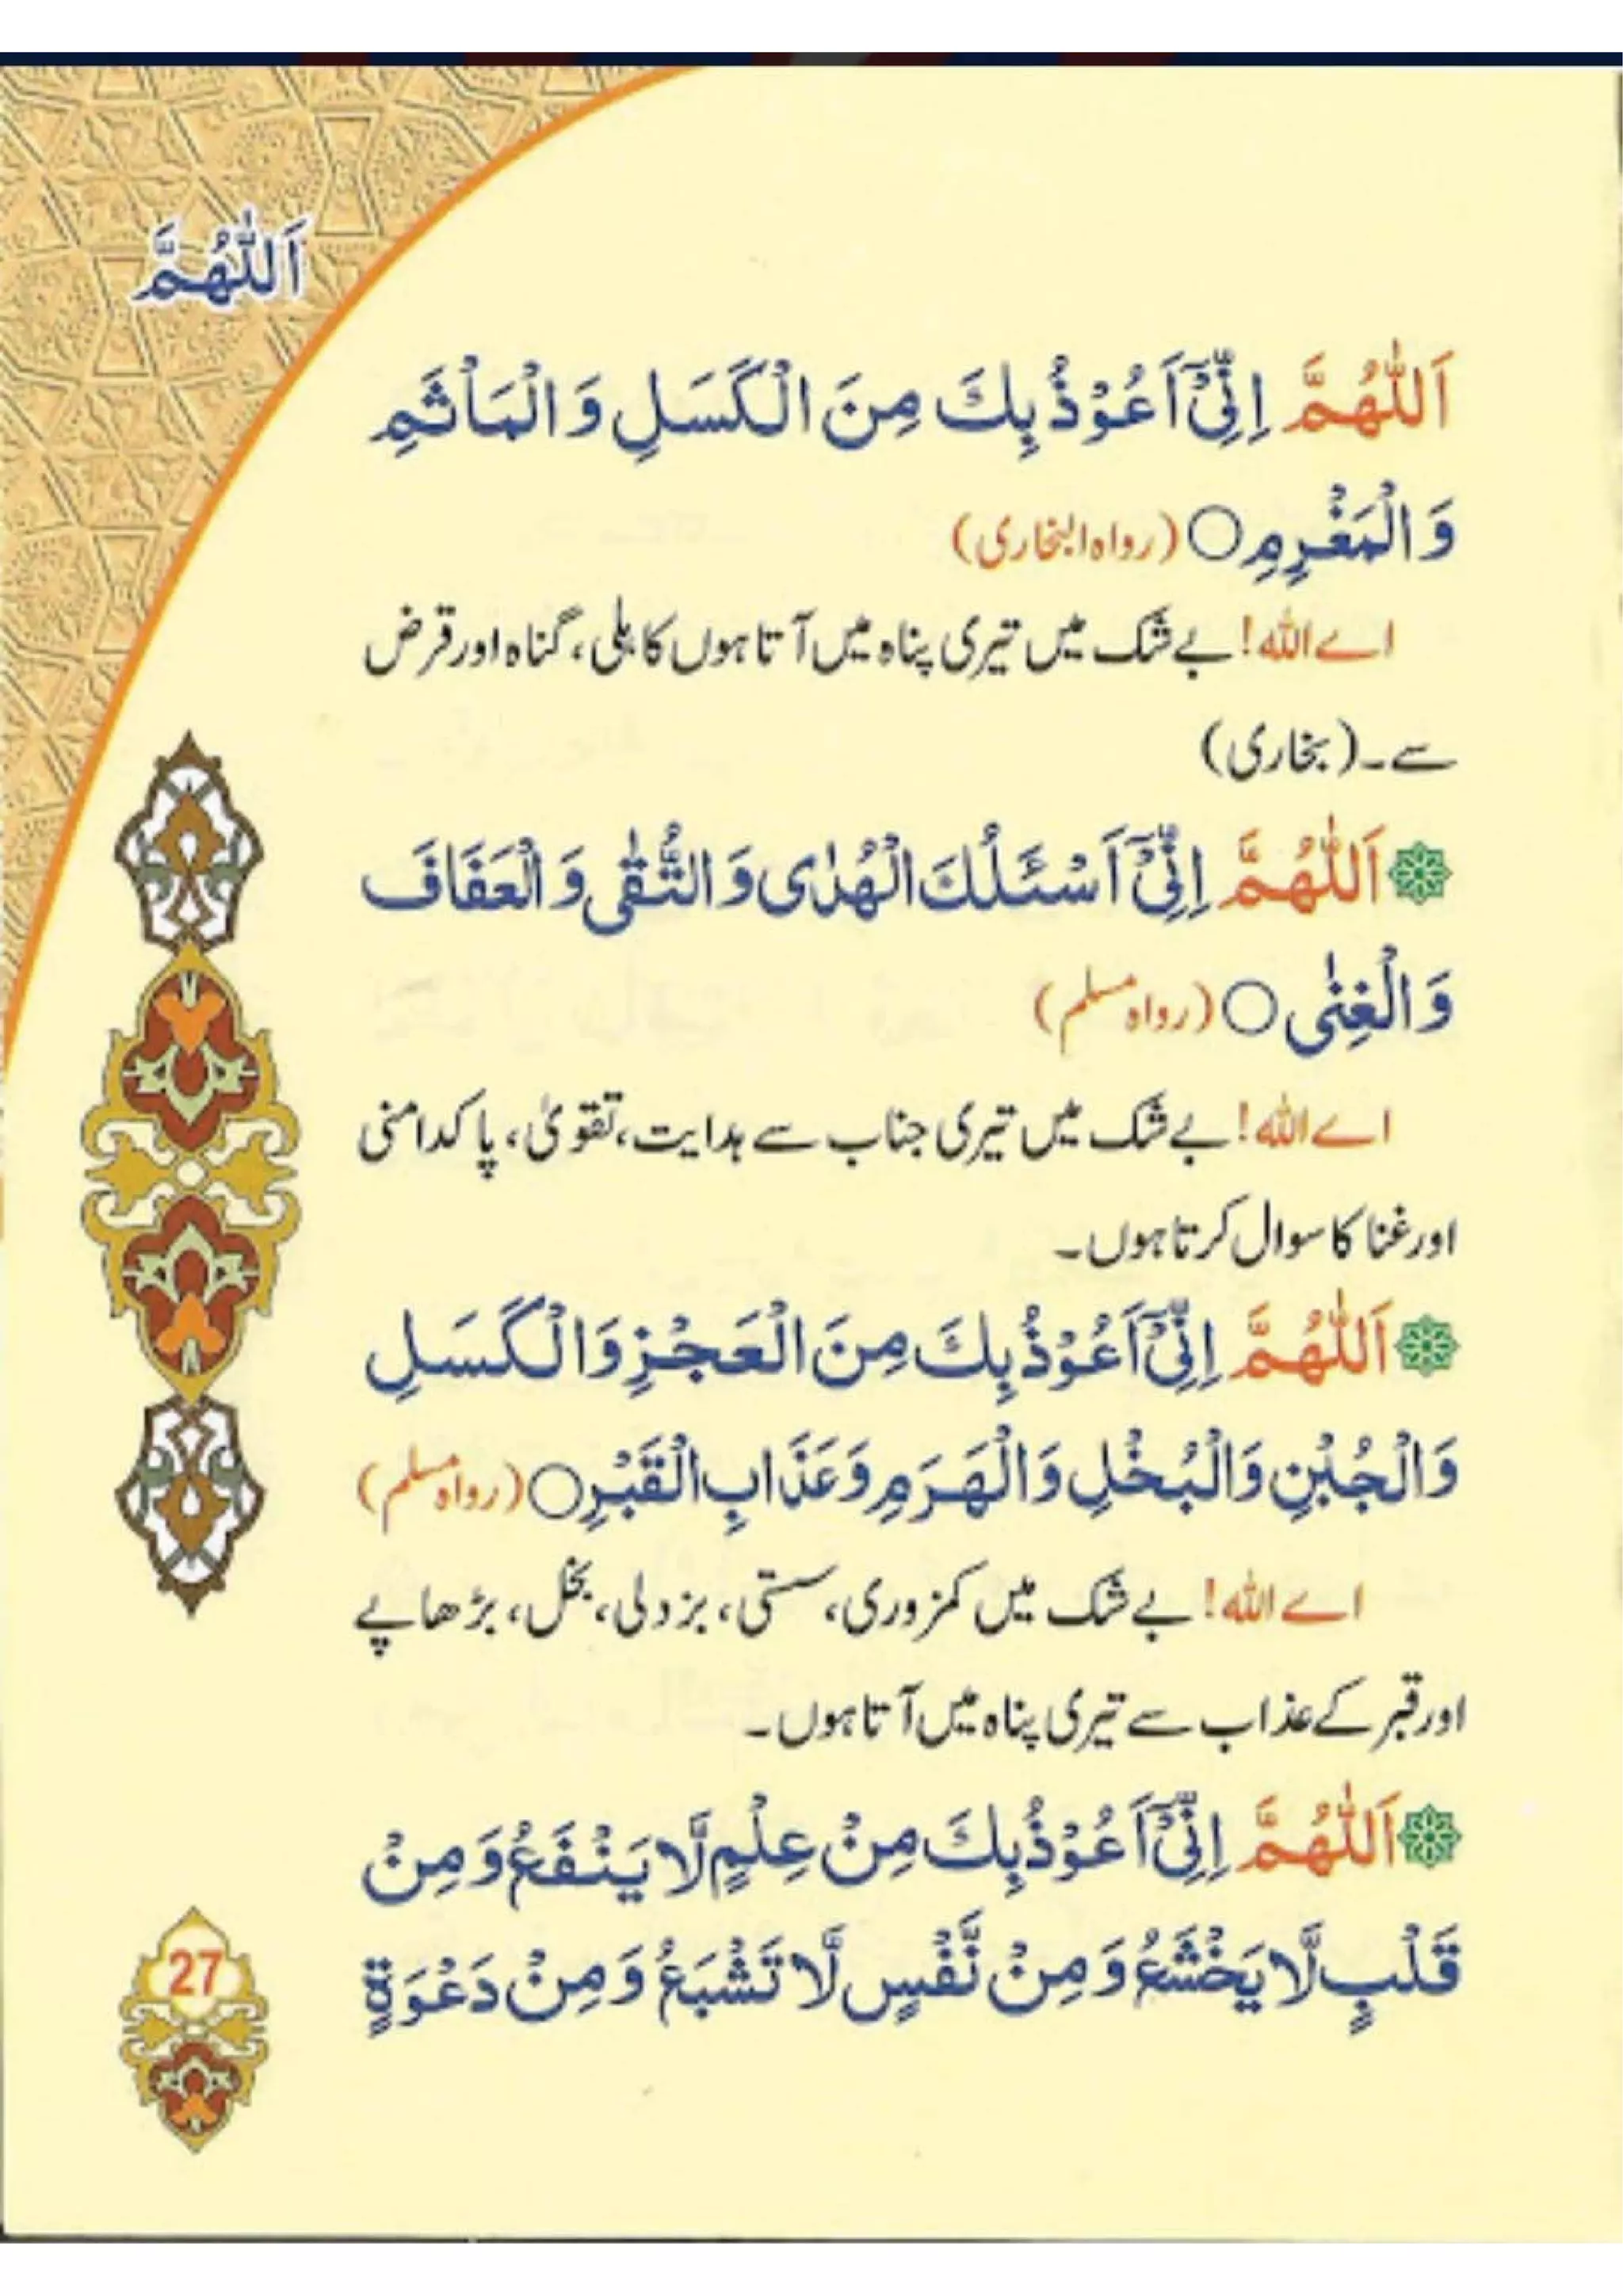 اَللّٰهُمَّ
اَللّٰهُمَّ اِنِّیْۤ اَعُوْذُ بِكَ مِنَ الْكَسَلِ وَ الْمَاْثَمِ
وَ الْمَغْرِمِ ○ (رواہ البخاری)
اے اللہ! بے شک میں تیری پناہ میں آتا ہوں کاہلی، گناہ اور قرض
سے۔ (بخاری)
اَللّٰهُمَّ اِنِّیْۤ اَسْئَلُكَ الْهُدٰی وَ التُّقٰی وَ الْعَفَافَ
وَ الْغِنٰی ○ (رواہ مسلم)
اے اللہ! بے شک میں تیری جناب سے ہدایت، تقویٰ، پاکدامنی
اور غنا کا سوال کرتا ہوں۔
اَللّٰهُمَّ اِنِّیْۤ اَعُوْذُ بِكَ مِنَ الْعَجْزِ وَ الْكَسَلِ
وَ الْجُبْنِ وَ الْبُخْلِ وَ الْهَرَمِ وَ عَذَابِ الْقَبْرِ ○ (رواہ مسلم)
اے اللہ! بے شک میں کمزوری، سستی، بزدلی، بخل، بڑھاپے
اور قبر کے عذاب سے تیری پناہ میں آتا ہوں۔
اَللّٰهُمَّ اِنِّیْۤ اَعُوْذُ بِكَ مِنْ عِلْمٍ لَّا یَنْفَعُ وَ مِنْ
قَلْبٍ لَّا یَخْشَعُ وَ مِنْ نَّفْسٍ لَّا تَشْبَعُ وَ مِنْ دَعْوَةٍ
27